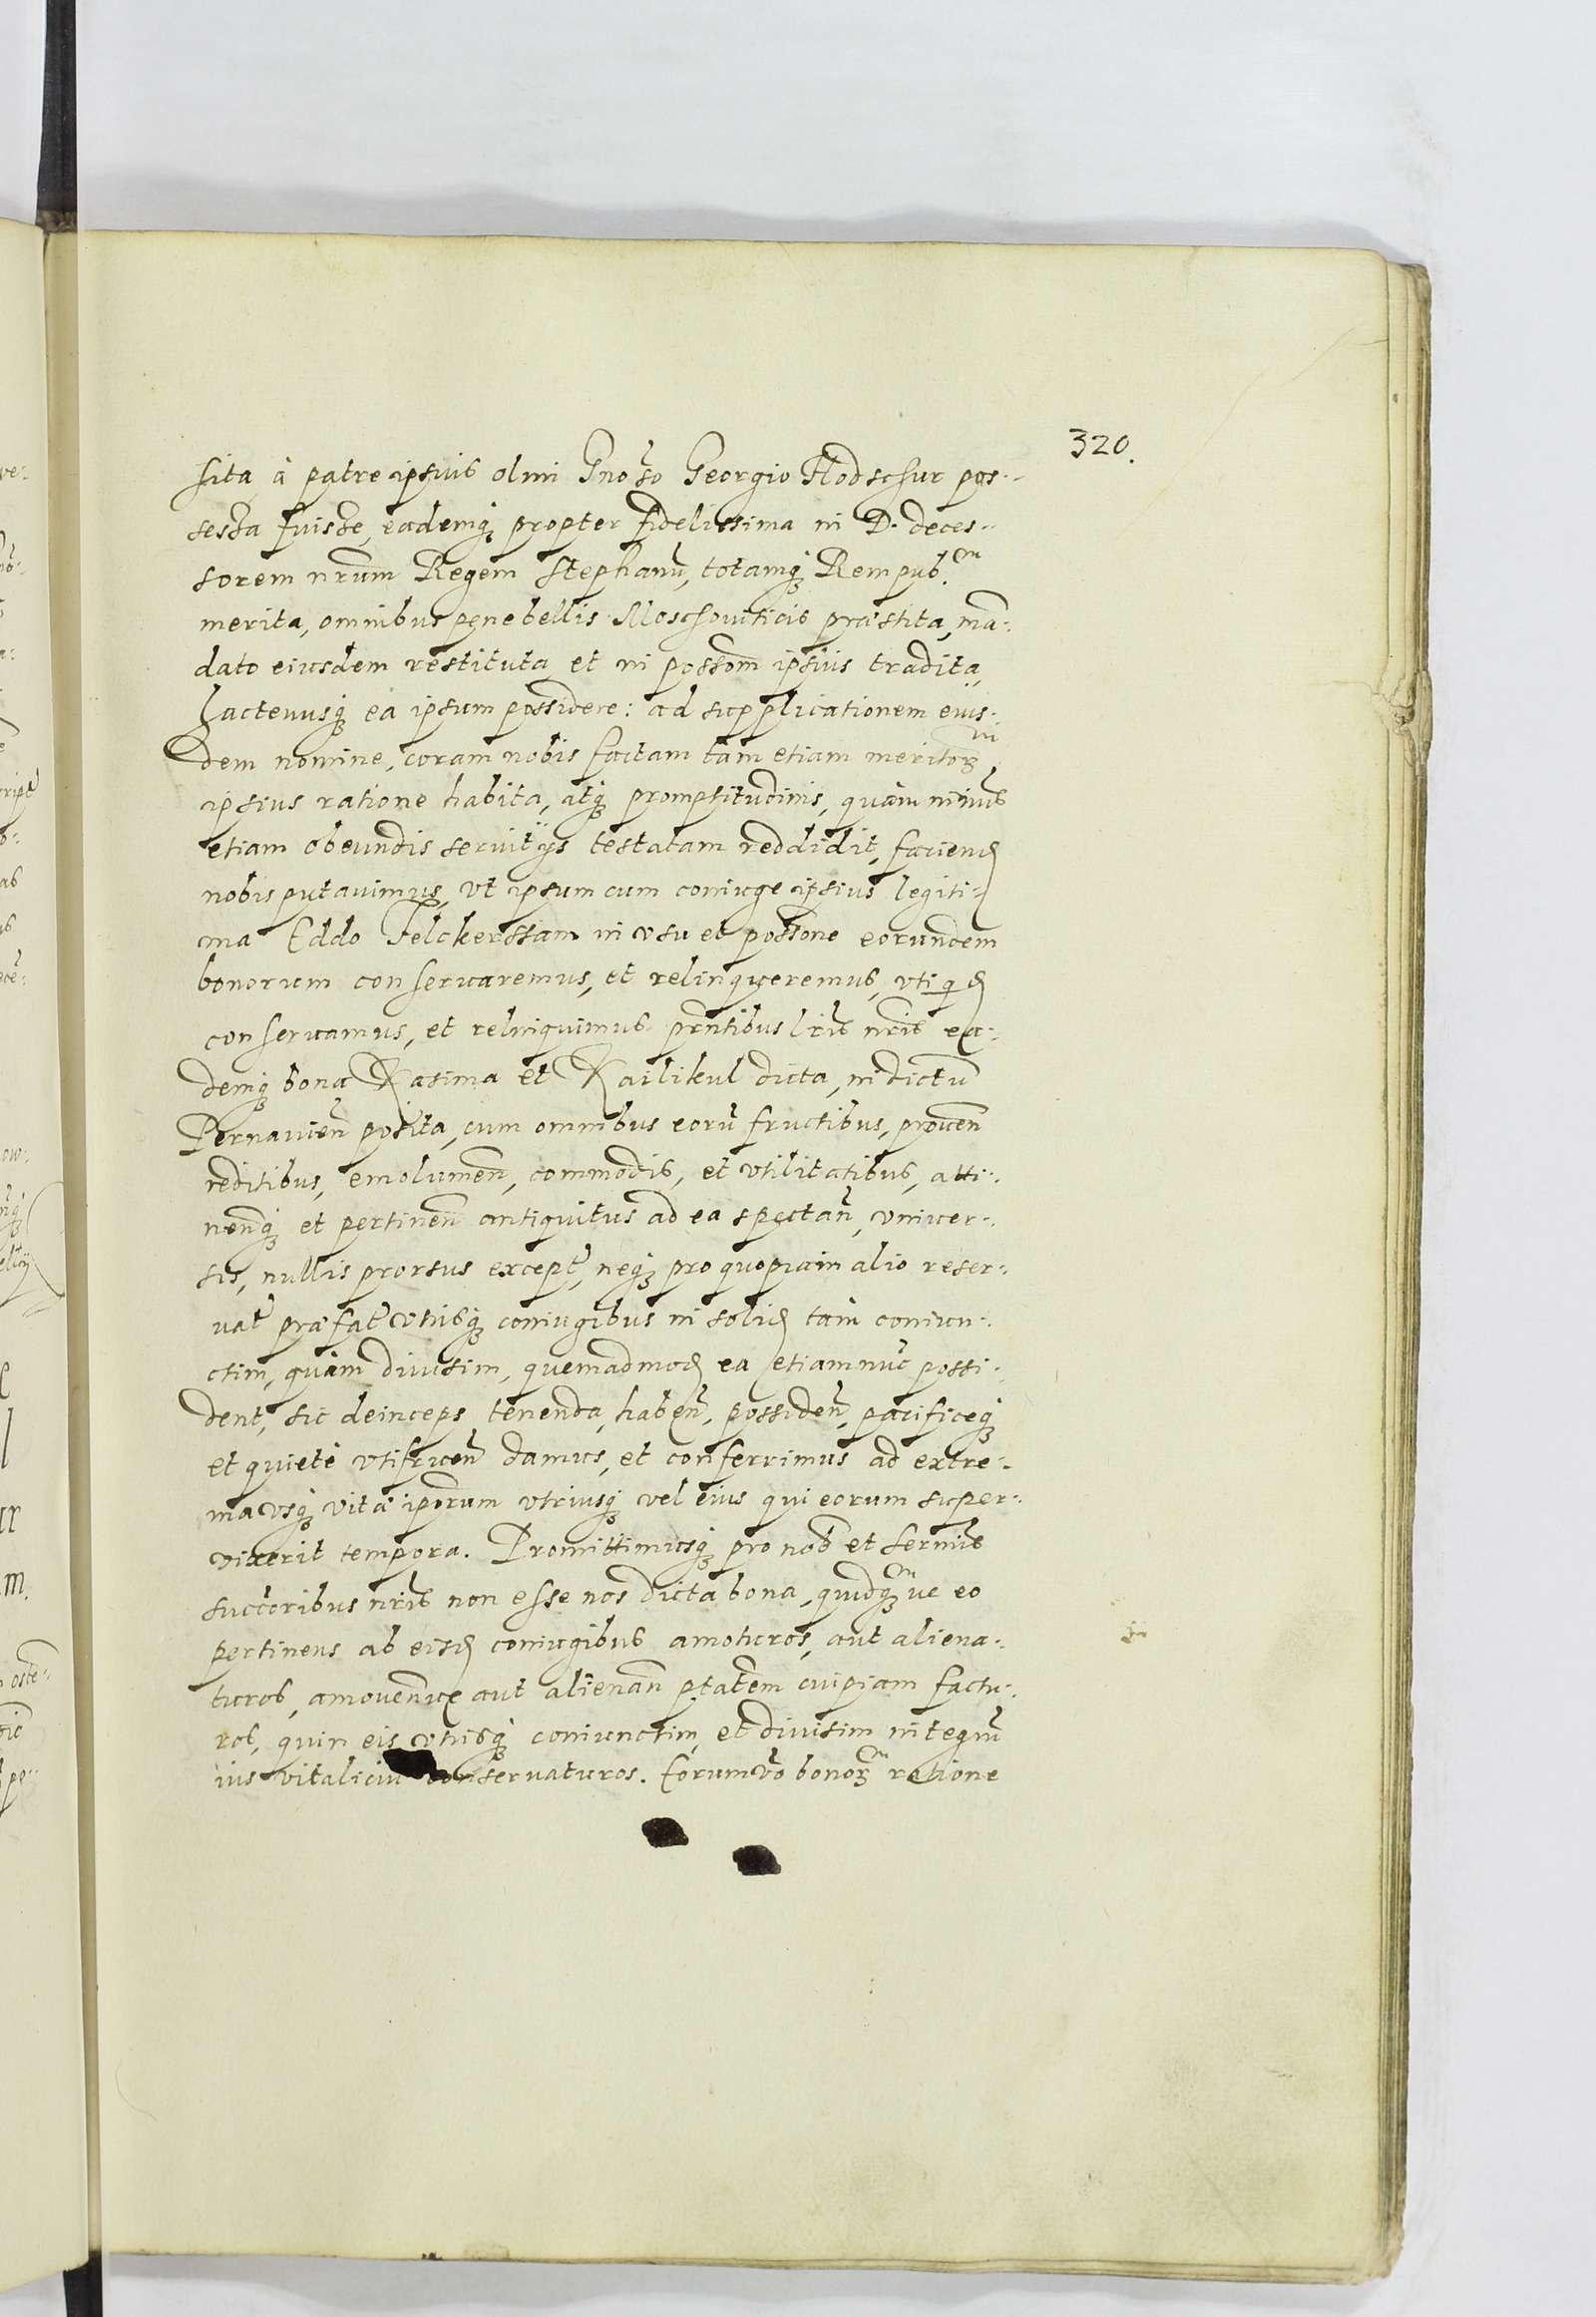 320.
sita à patre ipsius olim Gnoso Georgio Hodschur pos-
sessa fuisse, eademq; propter fidelissima in D. deces-
sorem nrum Regem Stephanū, totamq; Rempub.cm
merita, omnibus pene bellis Moschouiticis præstita, mā-
dato eiusdem restituta et in possom̄ ipsius tradita,
hactenusq; ea ipsum possidere: ad supplicationem eius-
dem nomine, coram nobis factam tam etiam meritorum
ipsius ratione habita, atq; promptitudinis, quàm in nr̄is
etiam obeundis seruitijs testatam reddidit, faciend
nobis putauimus, vt ipsum cum coniuge ipsius legiti-
ma Eddo Felckerssam in vsu et possone eorundem
bonorum conseruaremus, et relinqueremus, vti qd
conseruamus, et relinquimus prn̄tibus lr̄is nr̄is ea-
demq; bona Kasima et Kailikul dicta, in dictū
Pernauien̄ posita, cum omnibus eorū fructibus, prouen̄
reditibus, emolumen̄, commodis, et vtilitatibus, atti-
nen̄q; et pertinen̄ antiquitus ad ea spectan̄, vniuer-
sis, nullis prorsus except, neq; pro quopiam alio reser-
uat præfat vtrisq; coniugibus in solid tàm coniun-
ctim, quàm diuisim, quemadmod ea etiamnūc possi-
dent, sic deinceps tenenda, haben̄, possiden̄, pacificeq;
et quietè vtifruen̄ damus, et conferrimus ad extre-
ma vsq; vitæ ip̄orum vtriusq; vel eius qui eorum super-
vixerit tempora. Promittimusq; pro nob et sermis
succoribus nr̄is non esse nos dicta bona, quidq;ue eo
pertinens ab eisd coniugibus amoturos, aut aliena-
turos, amouen̄ue aut alienan̄ ptatem cuipiam factu-
ros, quin eis vtrisq; coniunctim, et diuisim integrū
ius vitaliciū conseruaturos. Eorum vo bonorum ratione